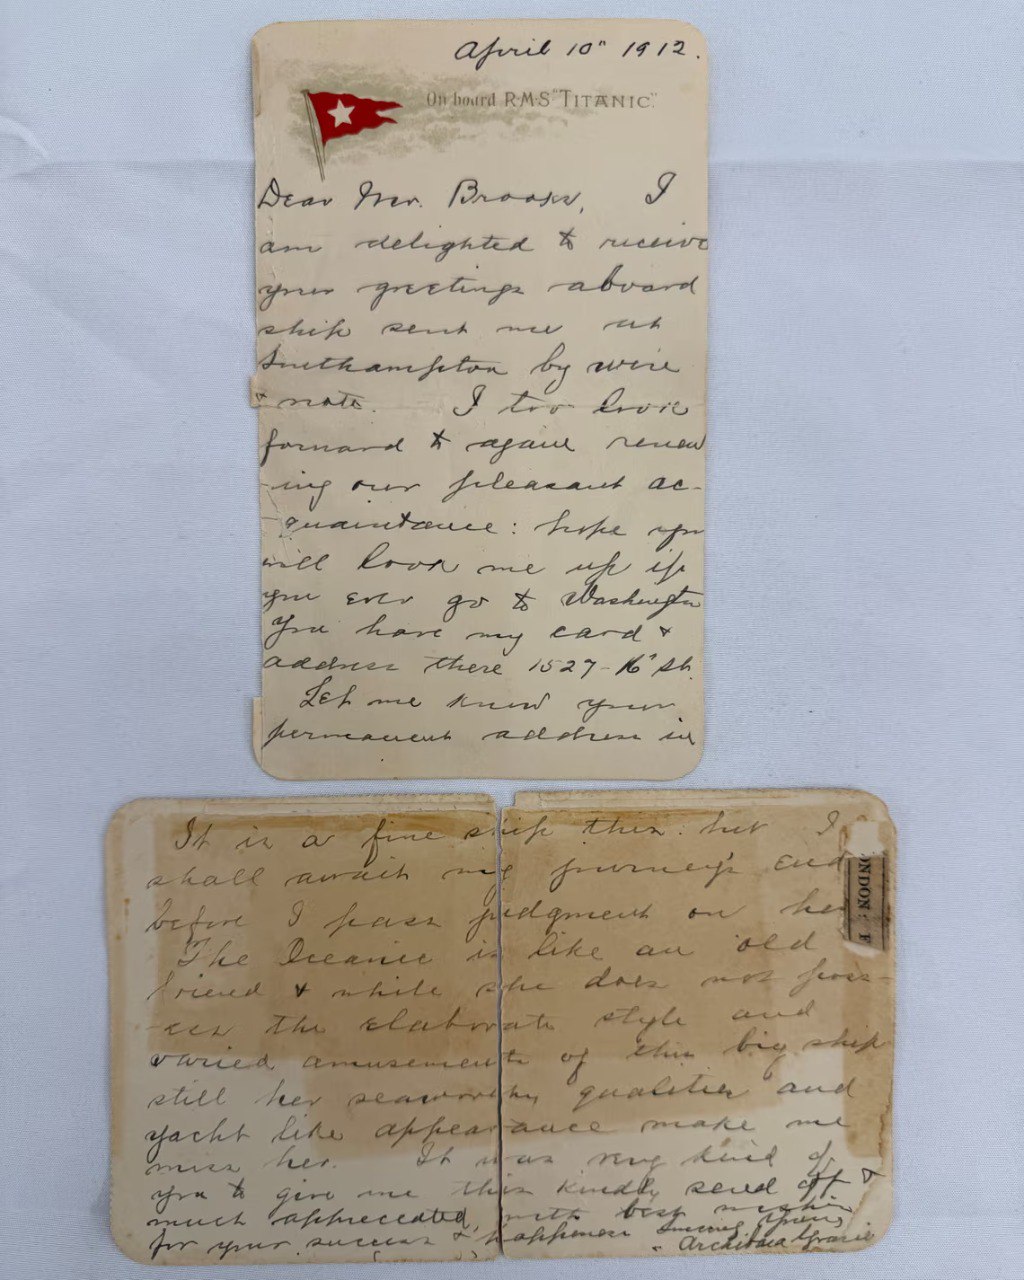 April 10" 1912.
On board R·M·S "TITANIC".
Dear Mr. Brooks, I
am delighted to receive
your greetings aboard
ship sent me at
Southampton by wire
& note. I too look
forward to again renew
-ing our pleasant ac-
quaintance: hope you
will look me up if
you ever go to Washington
You have my card &
address there 1527-16" St.
Let me know your
permanent address in
It is a fine ship this: but I
shall await my journey's end
before I pass judgment on her
The Oceanic is like an old
friend & while she does not poss-
-ess the elaborate style and
varied amusements of this big ship
still her seaworthy qualities and
yacht like appearance make me
miss her. It was very kind of
you to give me this kindly send off &
much appreciated, with best wishes
for your success & happiness Sincerely Yours
Archibald Gracie
ONDON: F